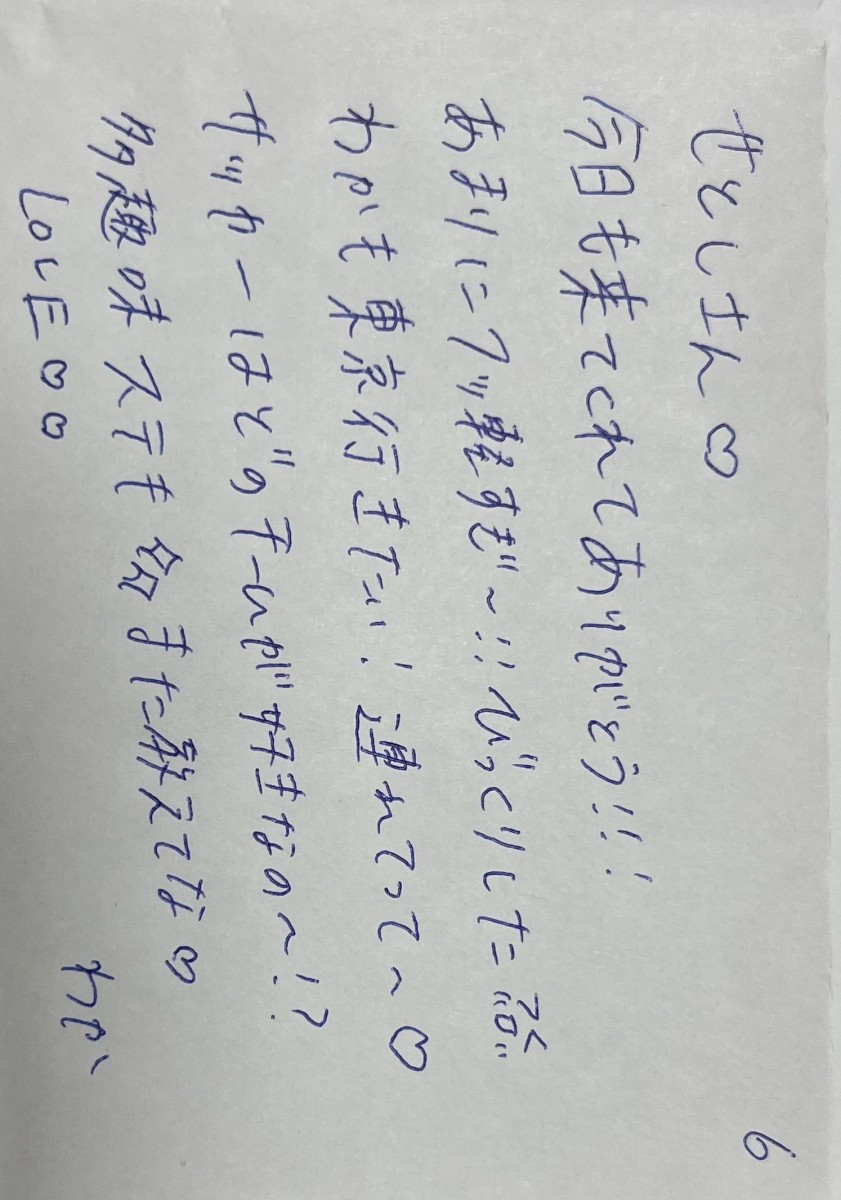 6
せとしさん♡
今日も来てくれてありがとう!!!
あまりにフッ軽すぎ~!!びっくりした
わかも東京行きたい!連れてって~♡
サッカーはどのチームが好きなの~!?
多趣味ステキ また教えてな♡
LOVE♡♡
わか